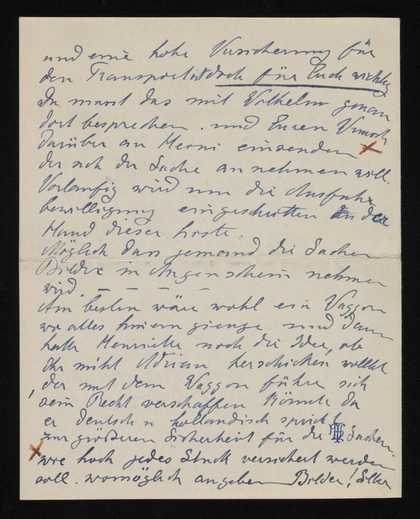 und eine hohe Versicherung für
den Transport ist doch für Euch wichtig
Du musst das mit Wilhelm genau
dort besprechen. und Euren Wunsch
darüber an Henni einsenden
der sich der Sache annehmen will.
Vorläufig wird um die Ausfuhr
bewilligung eingeschritten an der
Hand dieser Liste.
Möglich dass jemand die Sachen
Bilder in Augenschein nehmen
wird. — — — —
Am besten wäre wohl ein Waggon
wo alles hineingienge und dann
hatte Henriette noch die Idee, ob
Ihr nicht Adrian herschicken wolltet
, der mit dem Waggon führe sich
sein Recht verschaffen könnte da
er deutsch u holländisch spricht
zur größeren Sicherheit für die Sachen.
wie hoch jedes Stück versichert werden
soll. womöglich angeben Bilder! Silber